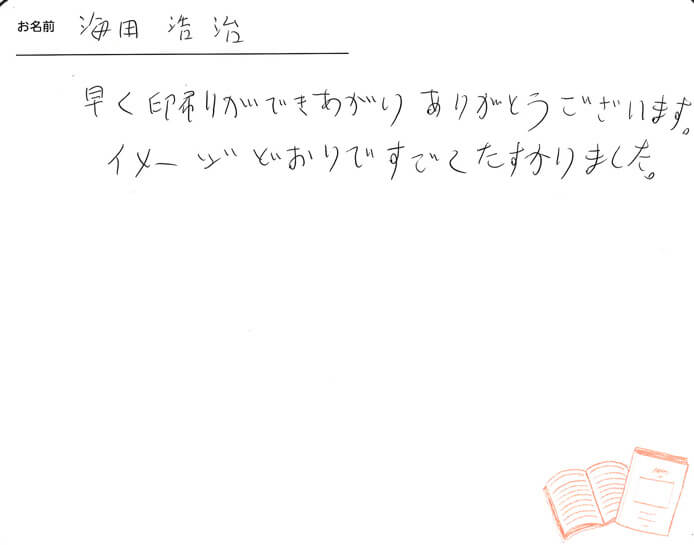 お名前 海田 浩治
早く印刷りができあがり ありがとうございます。
イメージどおりですごくたすかりました。